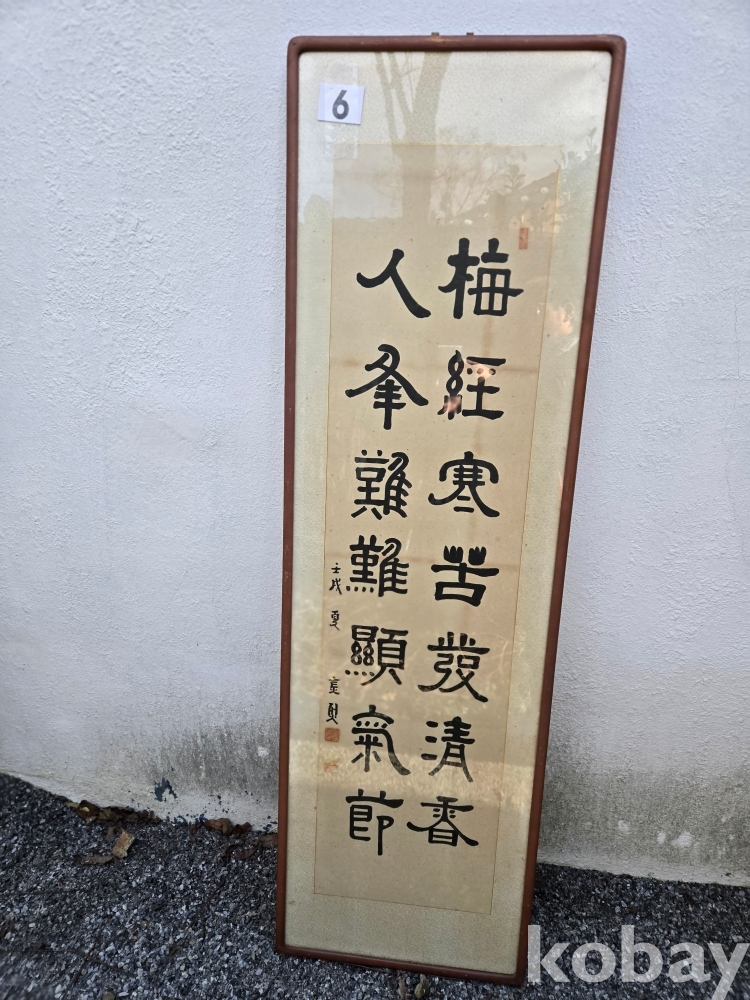 6
梅經寒苦發清香
人夆難難顯氣節
壬戌 夏
kobay